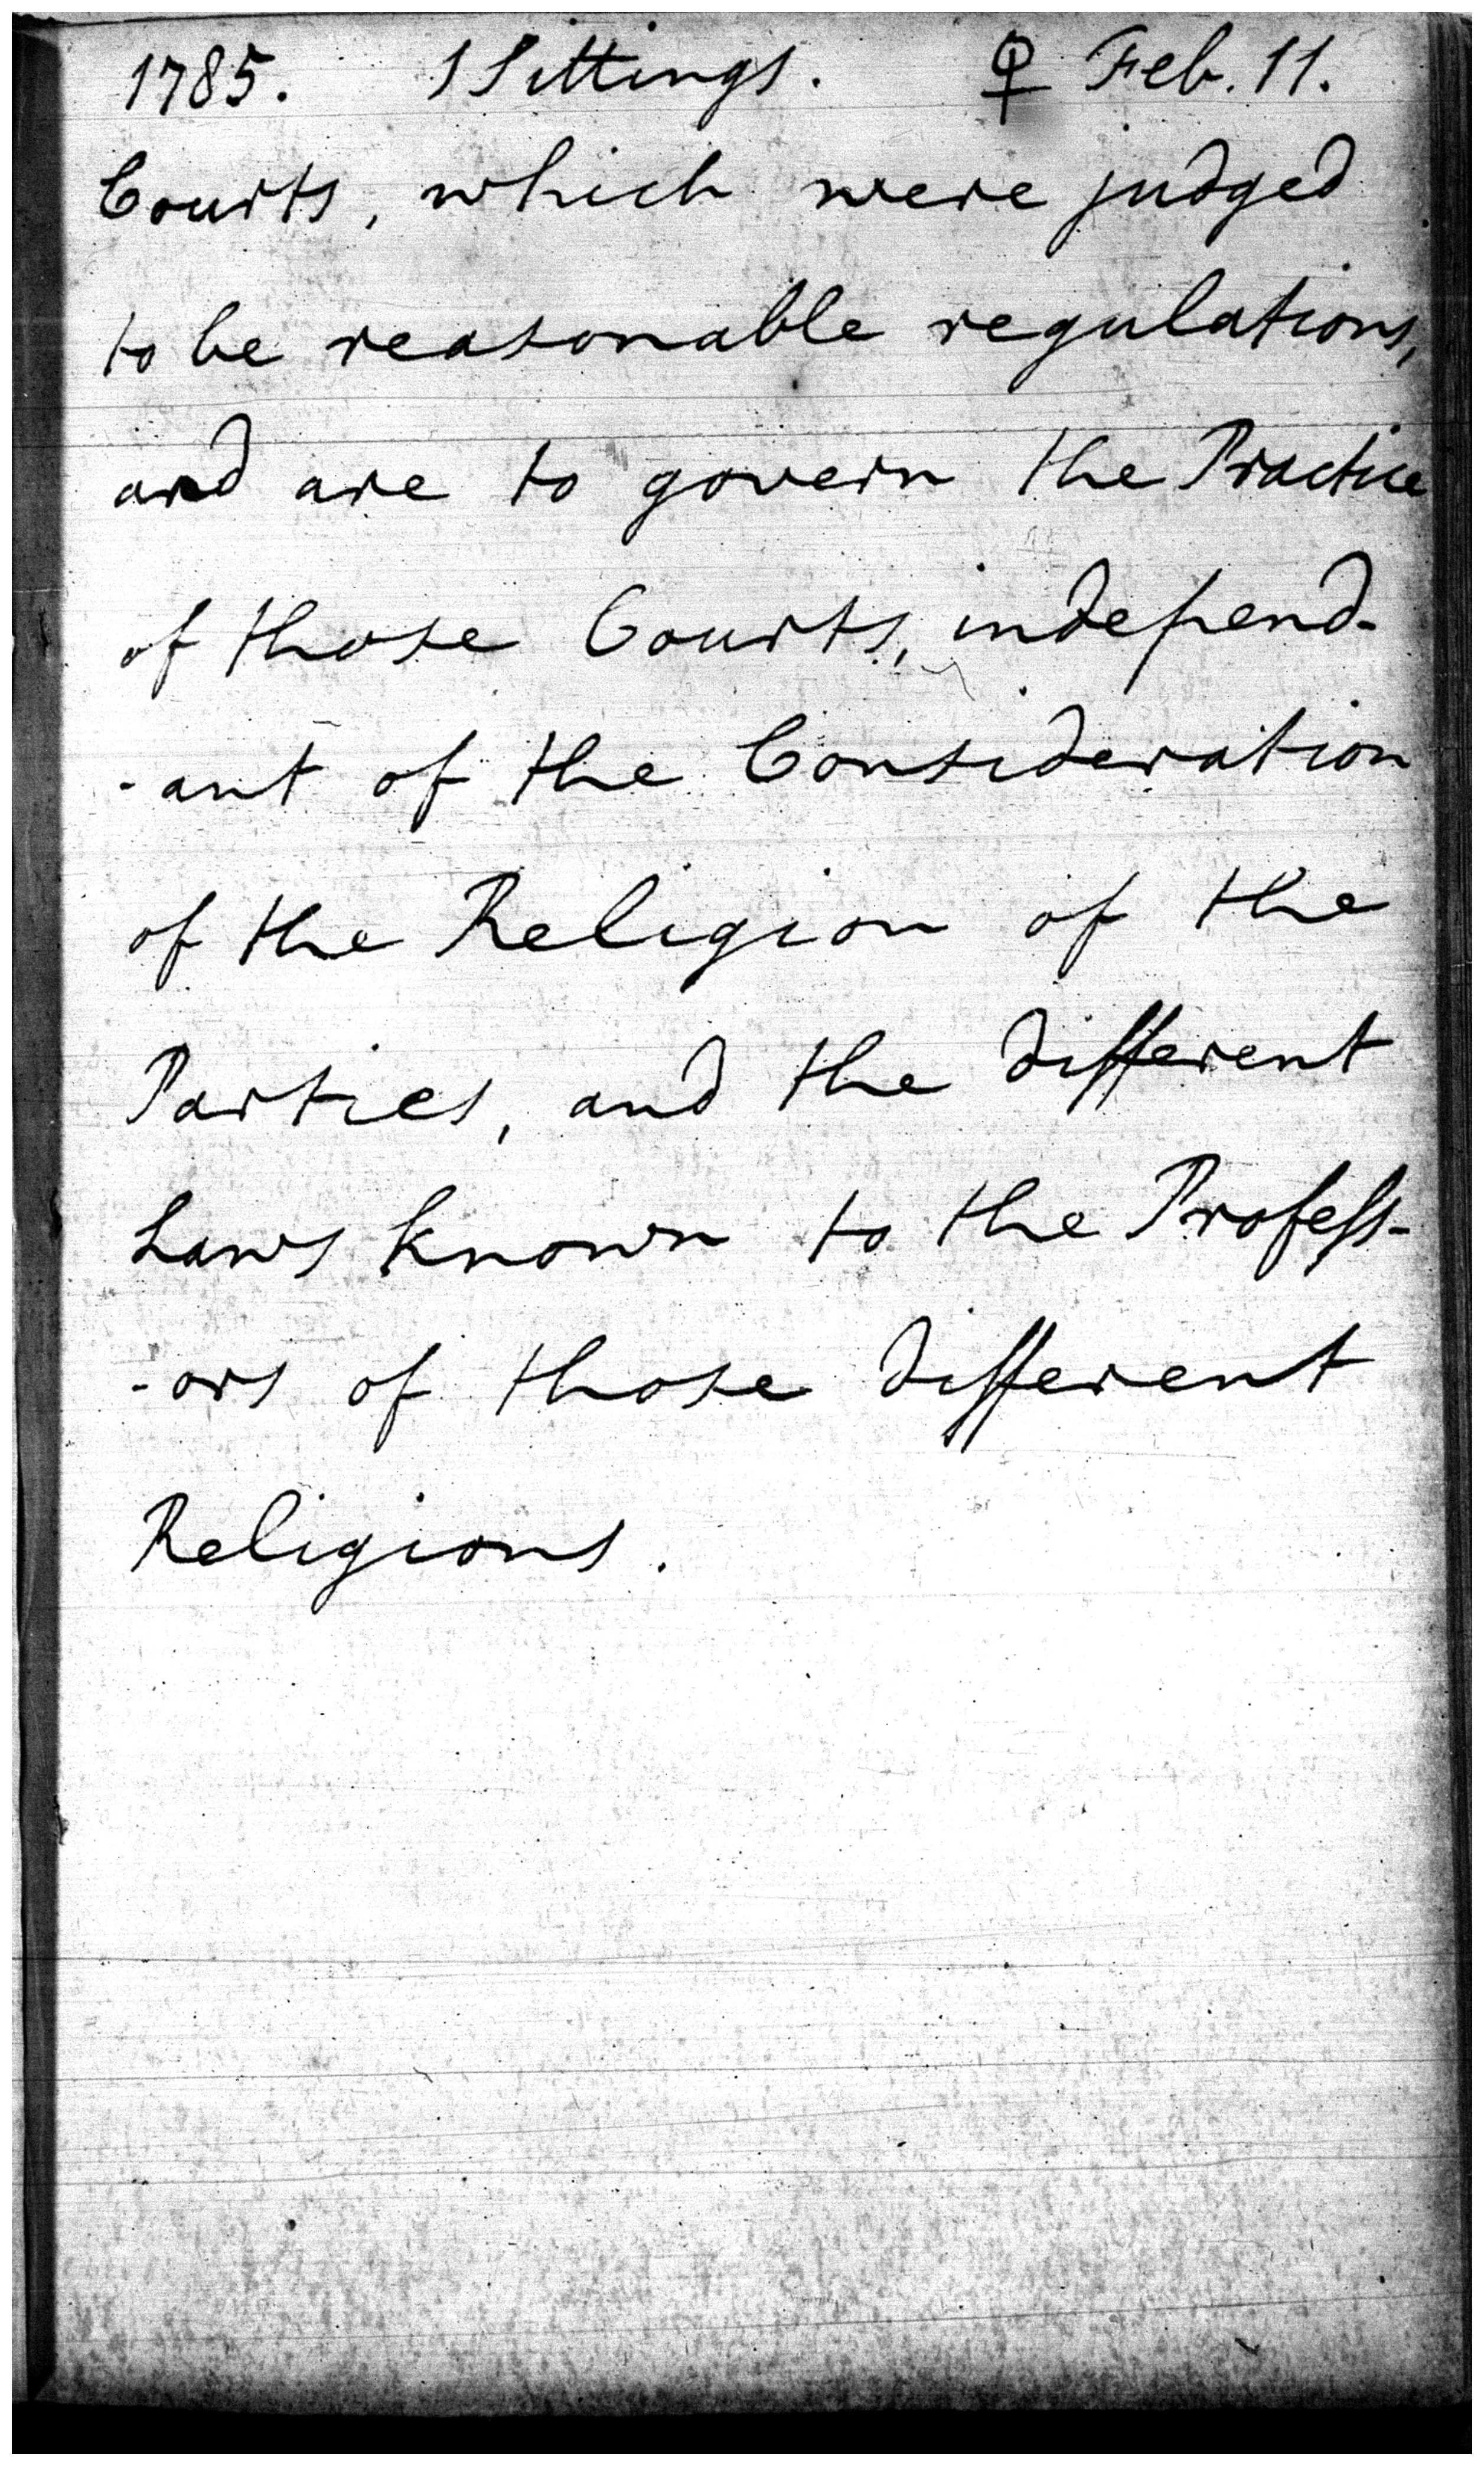 1785. 1 Sittings. ♀ Feb. 11.
Courts, which were judged
to be reasonable regulations,
and are to govern the Practice
of those Courts, independ-
-ant of the Consideration
of the Religion of the
Parties, and the different
Laws known to the Profess-
-ors of those different
Religions.